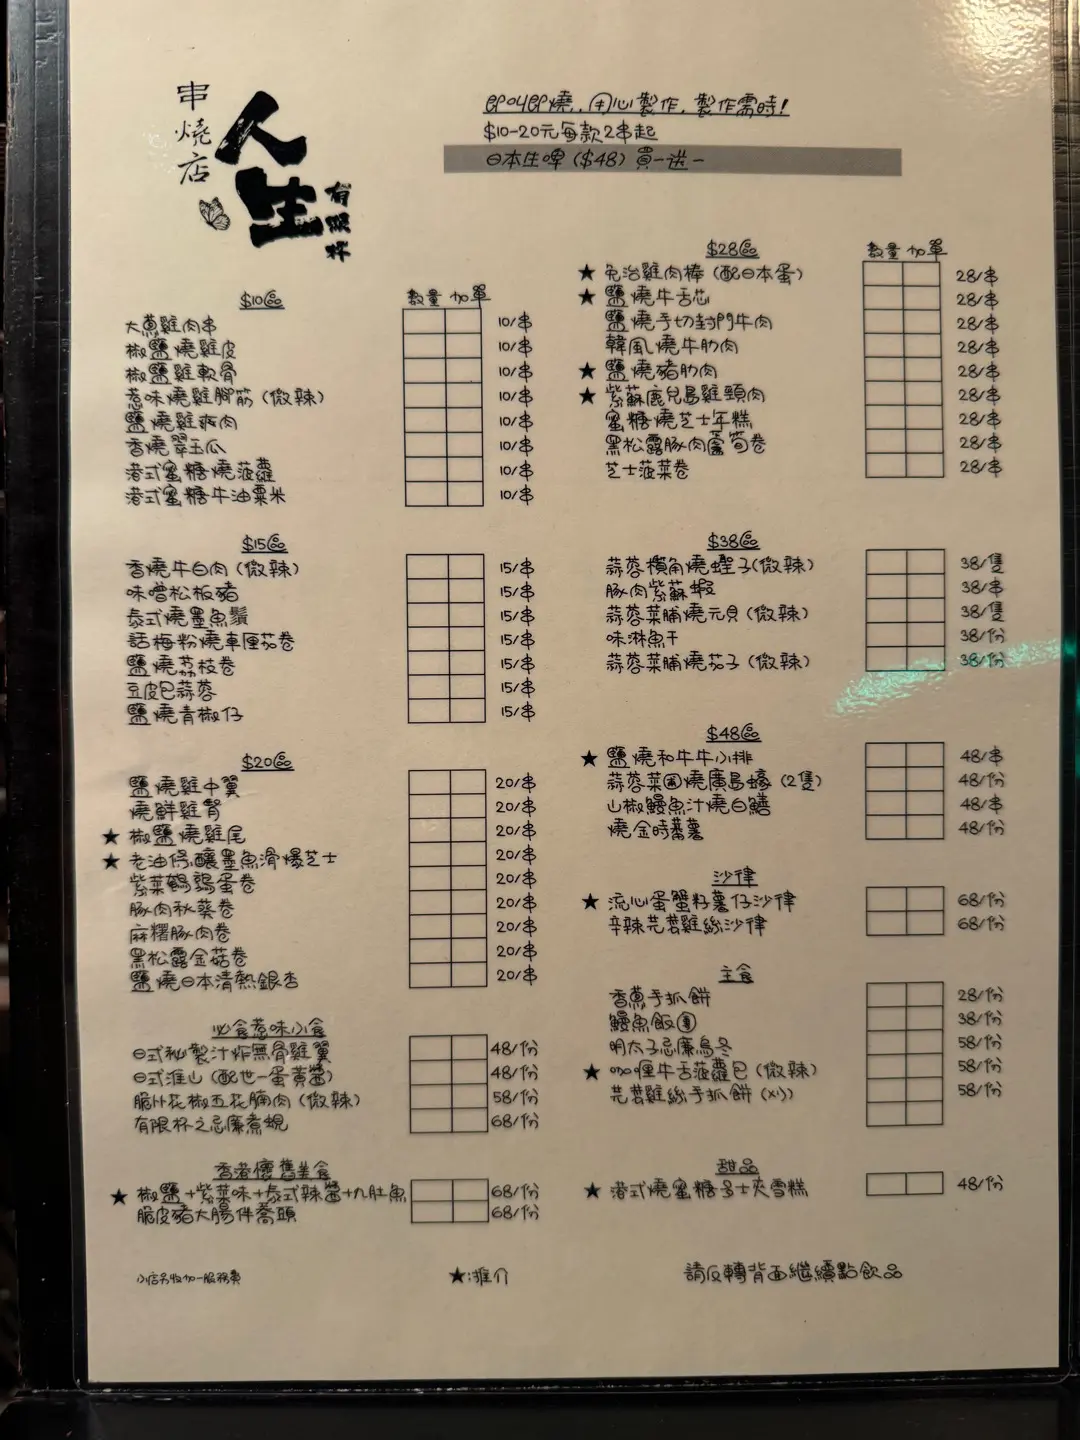 串燒店
人生
有限杯
即叫即燒，用心製作，製作需時！
$10-20元每款2串起
日本生啤 ($48) 買一送一
$10區 數量 加單
大蔥雞肉串 10/串
椒鹽燒雞皮 10/串
椒鹽雞軟骨 10/串
惹味燒雞腳筋 (微辣) 10/串
鹽燒雞爽肉 10/串
香燒翠玉瓜 10/串
港式蜜糖燒菠蘿 10/串
港式蜜糖牛油粟米 10/串
$15區
香燒牛白肉 (微辣) 15/串
味噌松板豬 15/串
泰式燒墨魚鬚 15/串
話梅粉燒車厘茄卷 15/串
鹽燒荔枝卷 15/串
豆皮包蒜蓉 15/串
鹽燒青椒仔 15/串
$20區
鹽燒雞中翼 20/串
燒鮮雞腎 20/串
★ 椒鹽燒雞尾 20/串
★ 老油條釀墨魚滑爆芝士 20/串
紫菜鵪鶉蛋卷 20/串
豚肉秋葵卷 20/串
麻糬豚肉卷 20/串
黑松露金菇卷 20/串
鹽燒日本清熱銀杏 20/串
必食惹味小食
日式秘製汁炸無骨雞翼 48/份
日式淮山 (配世一蛋黃醬) 48/份
脆卜花椒五花腩肉 (微辣) 58/份
有限杯之忌廉煮蜆 68/份
香港懷舊美食
★ 椒鹽+紫菜味+泰式辣醬+九肚魚 68/份
脆皮豬大腸伴蕎頭 68/份
小店另收加一服務費
★:推介
$28區 數量 加單
★ 免治雞肉棒 (配日本蛋) 28/串
★ 鹽燒牛舌芯 28/串
鹽燒手切封門牛肉 28/串
韓風燒牛肋肉 28/串
★ 鹽燒豬肋肉 28/串
★ 紫蘇鹿兒島雞頸肉 28/串
蜜糖燒芝士年糕 28/串
黑松露豚肉蘆筍卷 28/串
芝士菠菜卷 28/串
$38區
蒜蓉欖角燒蟶子(微辣) 38/隻
豚肉紫蘇蝦 38/串
蒜蓉菜脯燒元貝 (微辣) 38/隻
味淋魚干 38/份
蒜蓉菜脯燒茄子 (微辣) 38/份
$48區
★ 鹽燒和牛牛小排 48/串
蒜蓉菜圃燒廣島蠔 (2隻) 48/份
山椒鰻魚汁燒白鱔 48/串
燒金時蕃薯 48/份
沙律
★ 流心蛋蟹籽薯仔沙律 68/份
辛辣芫荽雞絲沙律 68/份
主食
香蔥手抓餅 28/份
鰻魚飯團 38/份
明太子忌廉烏冬 58/份
★ 咖喱牛舌菠蘿包 (微辣) 58/份
芫荽雞絲手抓餅 58/份
甜品
★ 港式燒蜜糖多士夾雪糕 48/份
請反轉背面繼續點飲品